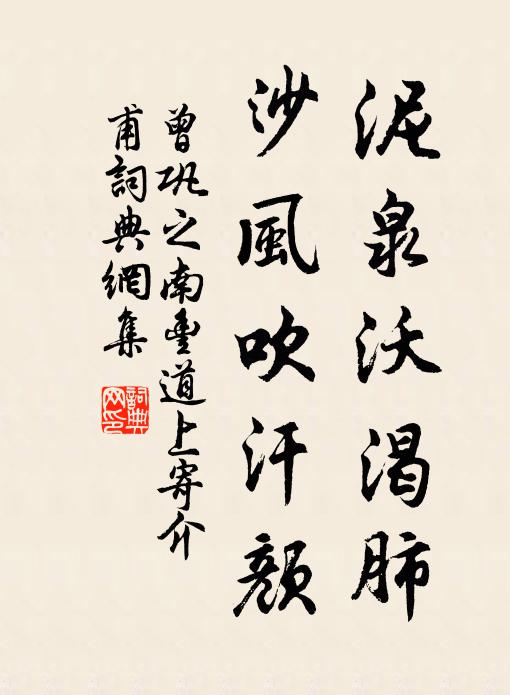 泥泉沃渴肺
沙風吹汗顏
曾巩之南豊道上寄介
甫詞典網集
詞典
网印